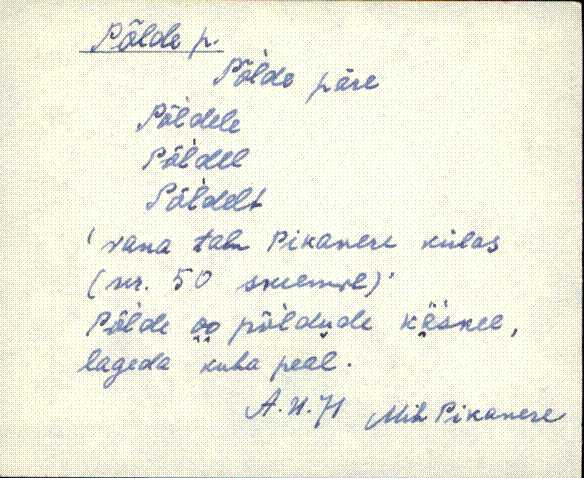 Põlde p.
Põl'de päre
Põl'dele
Põl'del
Põl'delt
'vana talu Pikavere külas
(nr. 50 skeemil)'
Põlde oo põldude käskel,
lageda kuha peal.
Mih Pikavere